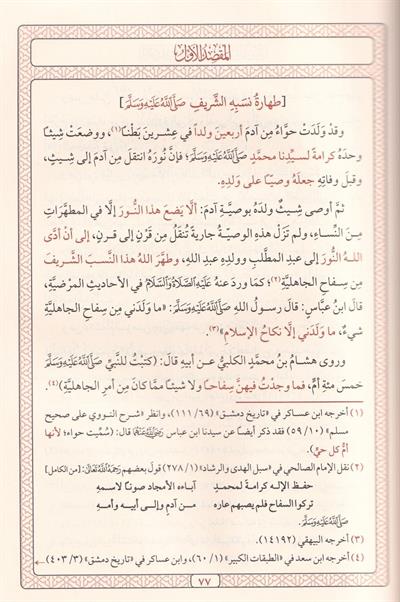 المقصد الأول
[طهارةُ نسَبِهِ الشَّريفِ ﷺ]
وقدْ وَلَدَتْ حوَّاءُ مِن آدمَ أربعينَ ولداً في عِشرينَ بَطْناً(١)، ووضعتْ شِيثاً
وحدَهُ كرامةً لسيِّدِنا محمَّدٍ ﷺ؛ فإنَّ نُورَهُ انتقلَ مِن آدمَ إلى شِيثٍ،
وقبلَ وفاتِهِ جعلَهُ وصيّاً على ولَدِهِ.
ثمَّ أوصى شِيثٌ ولدَهُ بوصيَّةِ آدمَ: ألَّا يضعَ هذا النُّورَ إلَّا في المطهَّراتِ
مِنَ النِّساءِ، ولم تَزَلْ هذهِ الوصيَّةُ جاريةً تُنقَلُ مِن قَرْنٍ إلى قرنٍ، إلى أنْ أدَّى
اللهُ النُّورَ إلى عبدِ المطَّلبِ وولدِهِ عبدِ اللهِ، وطهَّرَ اللهُ هذا النَّسبَ الشَّريفَ
مِن سِفاحِ الجاهليَّةِ(٢)؛ كما وردَ عنهُ عَلَيْهِ ٱلصَّلَاةُ وَٱلسَّلَامُ في الأحاديثِ المَرْضيَّةِ،
قالَ ابنُ عبَّاسٍ: قالَ رسولُ اللهِ ﷺ: «ما ولَدَني مِن سِفاحِ الجاهليَّةِ
شيءٌ، ما ولَدَني إلَّا نكاحُ الإسلامِ»(٣).
وروى هشامُ بنُ محمَّدٍ الكلبيُّ عن أبيهِ قالَ: (كتبْتُ للنَّبيِّ ﷺ
خمسَ مئةِ أمٍّ، فما وجدْتُ فيهنَّ سِفاحاً ولا شيئاً ممَّا كانَ مِن أمرِ الجاهليَّةِ)(٤).
(١) أخرجه ابن عساكر في «تاريخ دمشق» (٦٩/ ١١١)، وانظر «شرح النووي على صحيح
مسلم» (١٠/ ٥٩) فقد ذكر أيضاً عن سيدنا ابن عباس رَضِيَ اللهُ عَنْهُ قال: (سُمِّيت حواء؛ لأنها
أمُّ كل حيٍّ).
(٢) نقل الإمام الصالحي في «سبل الهدى والرشاد» (١/ ٢٧٨) قولَ بعضهم رَحِمَهُ اللهُ تَعَالَى: [من الكامل]
حفظ الإلـه كرامةً لمحمـدٍ آباءه الأمجاد صوناً لاسمهِ
تركوا السفاح فلم يصبهم عاره من آدمٍ وإلى أبيه وأمهِ
ﷺ.
(٣) أخرجه البيهقي (١٤١٩٢).
(٤) أخرجه ابن سعد في «الطبقات الكبير» (١/ ٦٠)، وابن عساكر في «تاريخ دمشق» (٣/ ٤٠٣)
٧٧